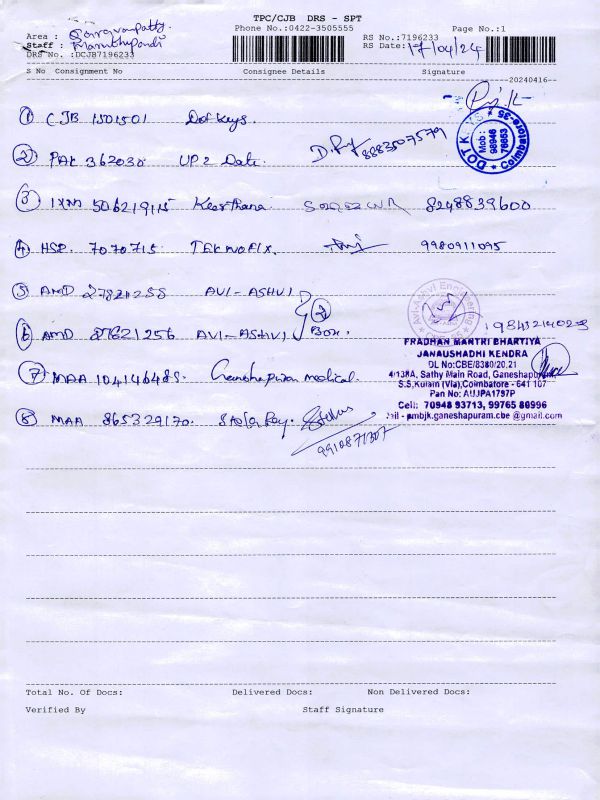 TPC/CJB DRS - SPT
Area : Saravanpatty
Phone No.:0422-3505555
Page No.:1
Staff : Marruthupandi
RS No.:7196233
DRS No. :DCJB7196233
RS Date: 17/04/24
S No Consignment No Consignee Details Signature
20240416
1 CJB 1501501 Dotkeys.
DOT KEYS * Coimbatore-35 *
Mob : 98946 76653
2 PAT 362030 UP 2 Date. 8883507579
3 IXM 506219115 Keerthana 8248839600
4 HSR 7070715 TEKNOFIX. 9980911095
5 AMD 27821255 AVI-ASHVI
6 AMD 27621256 AVI-ASHVI 2 Box.
Avi-Ashvi Engineering
PRADHAN MANTRI BHARTIYA
JANAUSHADHI KENDRA
DL No:CBE/8380/20,21
4/138A, Sathy Main Road, Ganeshapuram
S.S.Kulam (Via),Coimbatore - 641 107
Pan No: AUJPA1797P
Cell: 70948 93713, 99765 80996
pmbjk.ganeshapuram.cbe @gmail.com
7 MAA Ganeshapuram medical.
8 MAA 865329170.
9910871307
Total No. Of Docs: Delivered Docs: Non Delivered Docs:
Verified By Staff Signature